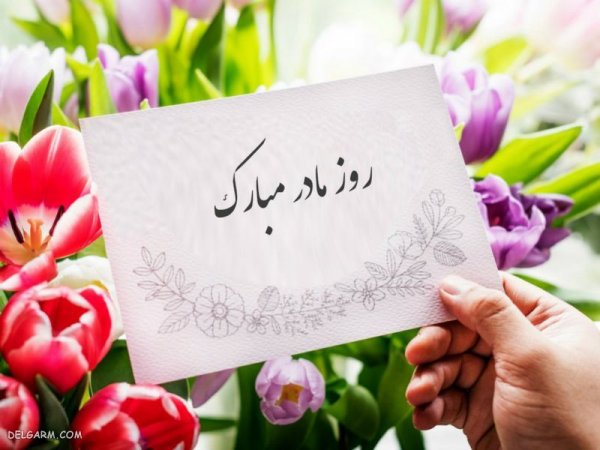 روز مادر مبارک
DELGARM.COM